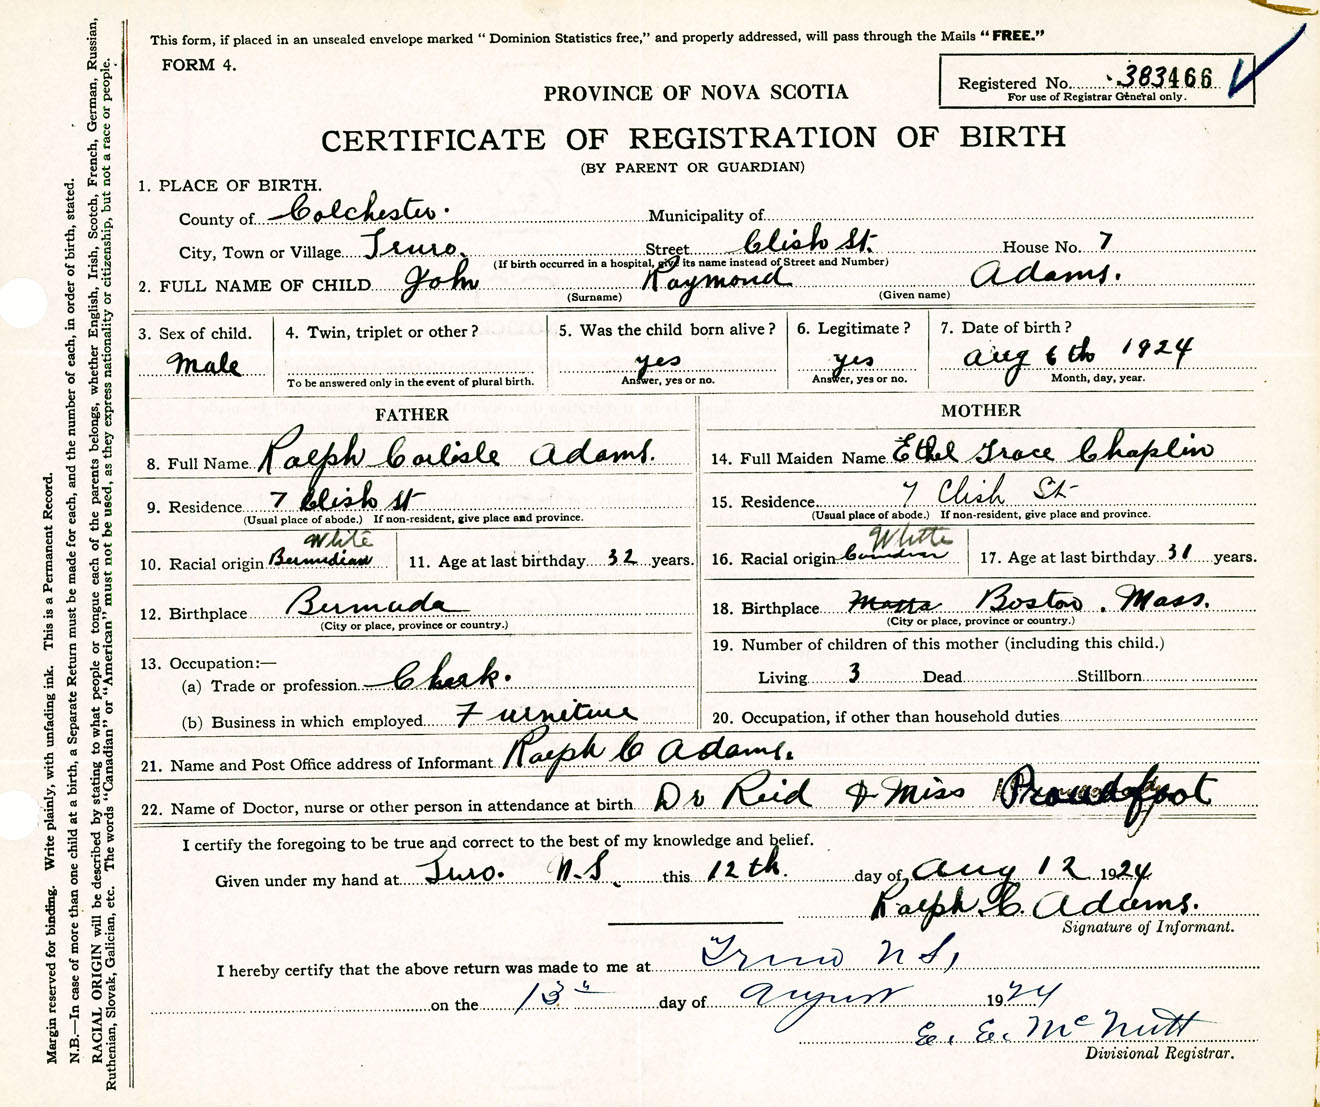 This form, if placed in an unsealed envelope marked “ Dominion Statistics free,” and properly addressed, will pass through the Mails “FREE.”
FORM 4.
Registered No. 383466
For use of Registrar General only.
PROVINCE OF NOVA SCOTIA
CERTIFICATE OF REGISTRATION OF BIRTH
(BY PARENT OR GUARDIAN)
1. PLACE OF BIRTH.
County of Colchester. Municipality of
City, Town or Village Truro. Street Clish St. House No. 7
(If birth occurred in a hospital, give its name instead of Street and Number)
2. FULL NAME OF CHILD John Raymond Adams.
(Surname) (Given name)
3. Sex of child. 4. Twin, triplet or other? 5. Was the child born alive? 6. Legitimate? 7. Date of birth?
Male yes yes Aug 6th 1924
To be answered only in the event of plural birth. Answer, yes or no. Answer, yes or no. Month, day, year.
FATHER MOTHER
8. Full Name Ralph Carlisle Adams. 14. Full Maiden Name Ethel Grace Chaplin
9. Residence 7 Clish St 15. Residence 7 Clish St
(Usual place of abode.) If non-resident, give place and province. (Usual place of abode.) If non-resident, give place and province.
White White
10. Racial origin Bermudian 11. Age at last birthday 32 years. 16. Racial origin Canadian 17. Age at last birthday 31 years.
12. Birthplace Bermuda 18. Birthplace Boston. Mass.
(City or place, province or country.) (City or place, province or country.)
19. Number of children of this mother (including this child.)
13. Occupation:—
(a) Trade or profession Clerk. Living 3 Dead Stillborn
(b) Business in which employed Furniture 20. Occupation, if other than household duties
21. Name and Post Office address of Informant Ralph C Adams.
22. Name of Doctor, nurse or other person in attendance at birth Dr Reid & Miss Proudfoot
I certify the foregoing to be true and correct to the best of my knowledge and belief.
Given under my hand at Truro. N.S. this 12th. day of Aug 12 1924
Ralph C. Adams.
Signature of Informant.
I hereby certify that the above return was made to me at Truro N S,
on the 13th day of August 1924
E. E. McNutt
Divisional Registrar.
Margin reserved for binding. Write plainly, with unfading ink. This is a Permanent Record.
N.B.—In case of more than one child at a birth, a Separate Return must be made for each, and the number of each, in order of birth, stated.
RACIAL ORIGIN will be described by stating to what people or tongue each of the parents belongs, whether English, Irish, Scotch, French, German, Russian,
Ruthenian, Slovak, Galician, etc. The words “Canadian” or “American” must not be used, as they express nationality or citizenship, but not a race or people.